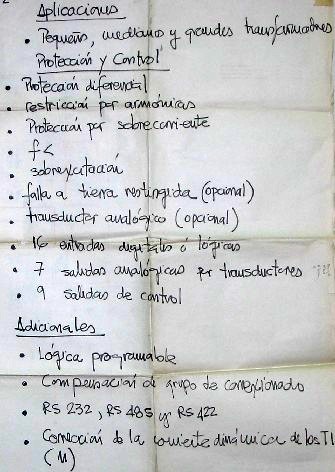 Aplicaciones
• Pequeños, medianos y grandes transformadores
Protección y Control
• Protección diferencial
• restricción por armónicas
• Protección por sobrecorriente
• f<
• sobrexcitación
• falla a tierra restringida (opcional)
• transductor analógico (opcional)
• 16 entradas digitales ó lógicas
• 7 salidas analógicas por transductores
• 9 salidas de control
Adicionales
• Lógica programable
• Compensación de grupo de conexionado
• RS 232, RS 485 y RS 422
• Corrección de la corriente dinámica de los TI